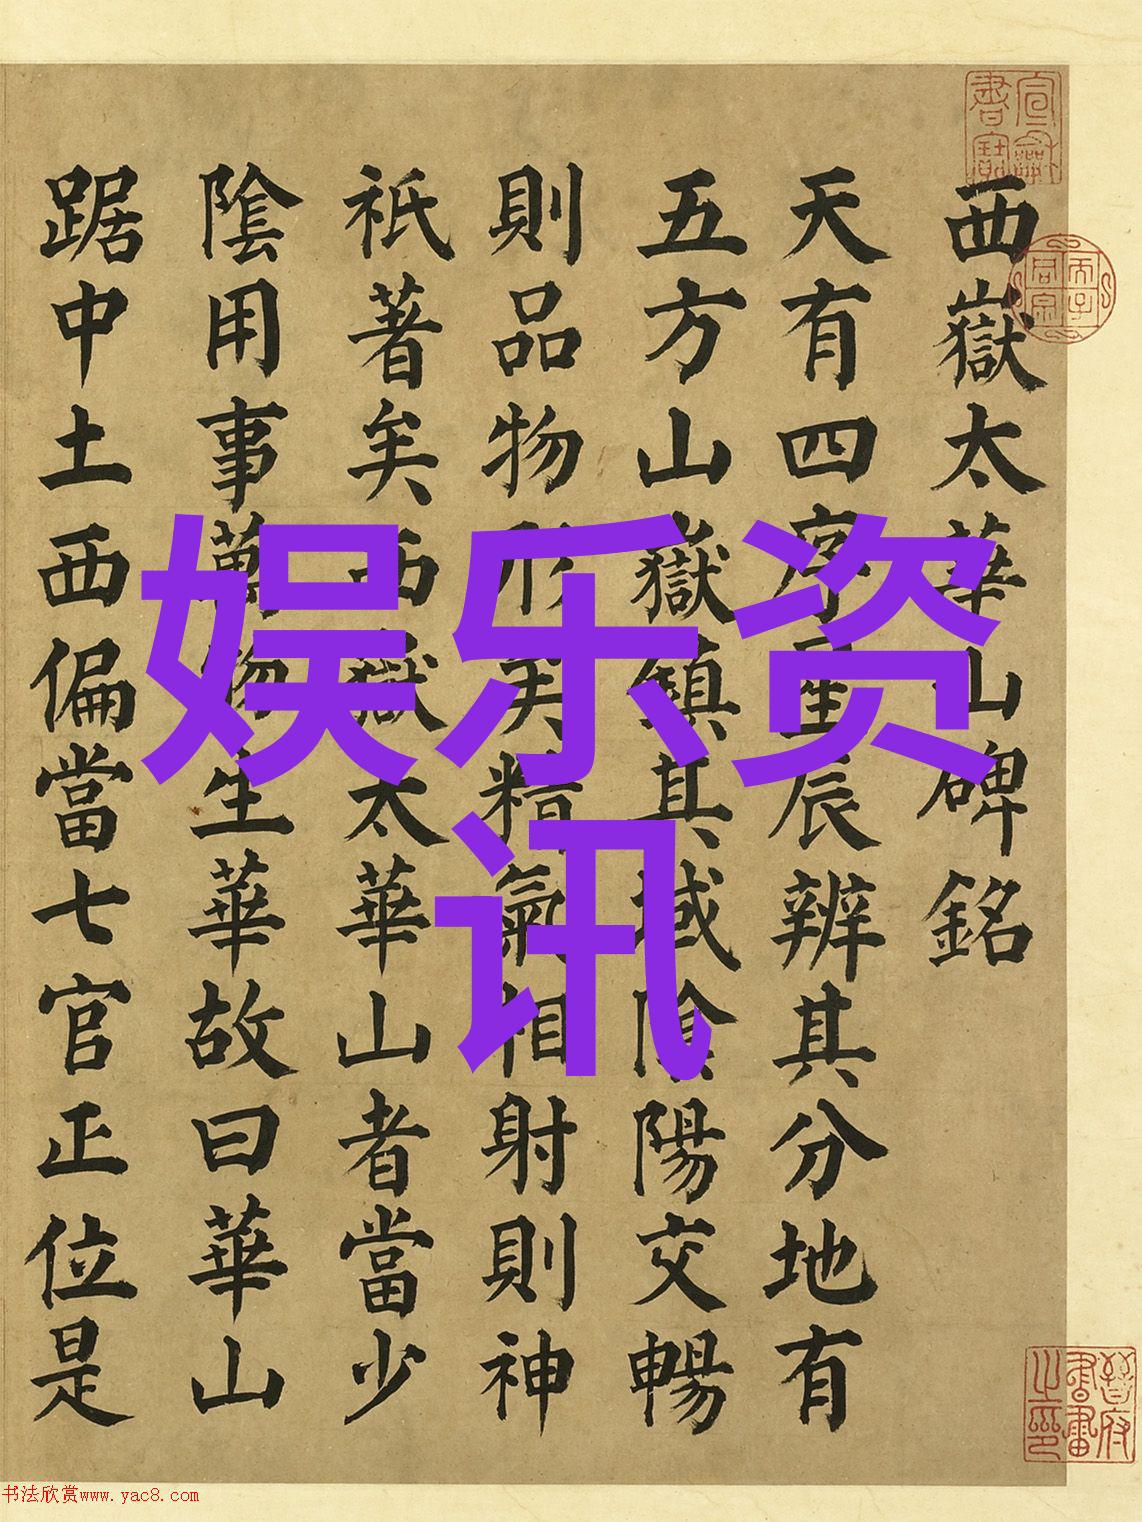 西嶽太華山碑銘
天有四序星辰辨其分地有
五方山嶽鎮其域陰陽交暢
則品物形矣精氣相射則神
祇著矣西嶽太華山者當少
陰用事萬物生華故曰華山
踞中土西偏當七官正位是
娱乐资
讯
书法欣赏www.yac8.com